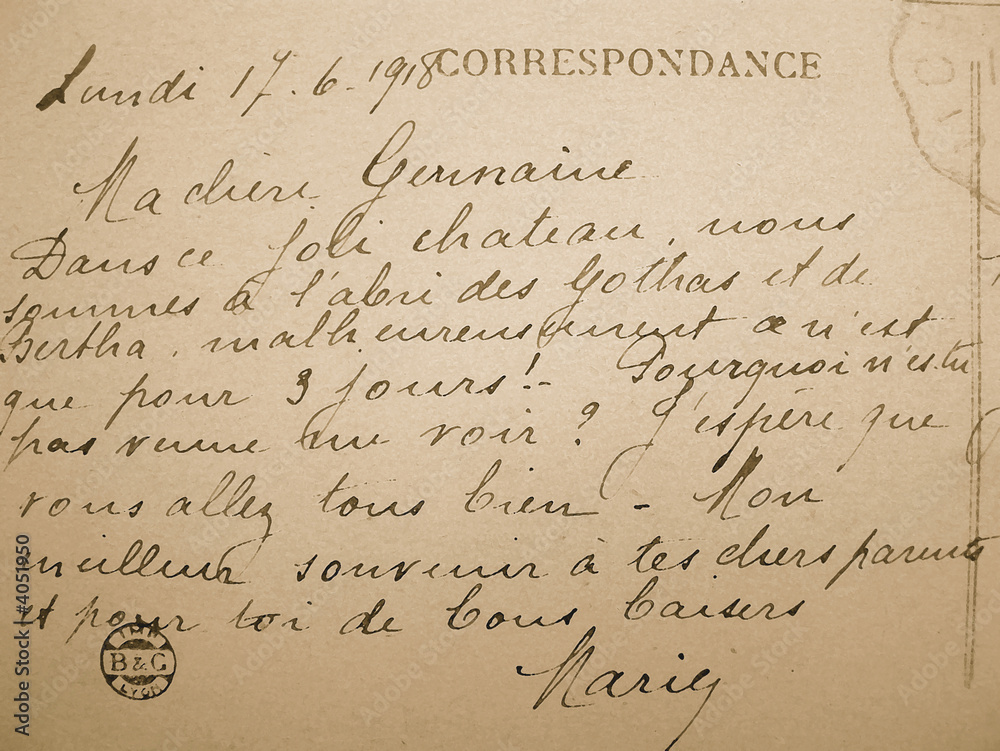 CORRESPONDANCE
Lundi 17.6.1918
Ma chère Germaine
Dans ce joli chateau, nous
sommes à l'abri des Gothas et de
Bertha, malheureusement ce n'est
que pour 3 jours! - Pourquoi n'es tu
pas venue me voir ? J'espère que
vous allez tous bien - Mon
meilleur souvenir à tes chers parents
et pour toi de bons baisers
Marie
IMP.
B & G
LYON
Adobe Stock | #4051950